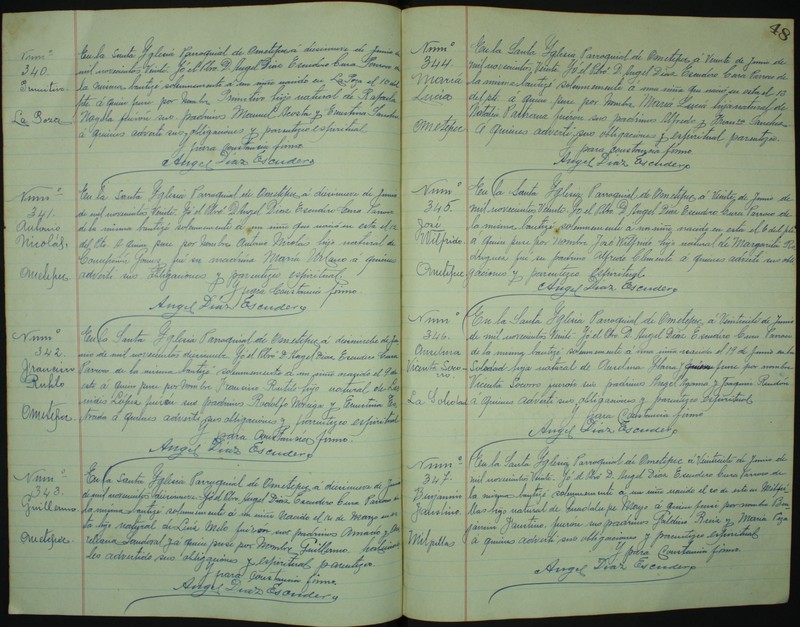 48
Num.º
340.
Primitivo
La Poza
En la Santa Yglesia Parroquial de Ometepec, á diecinueve de Junio de
mil novecientos Veinte. Yó el Pbro. D. Angel Diaz Escudero Cura Párroco de
la misma bautizé solemnemente á un niño nacido en La Poza el 10 del
pte. á quien puse por nombre Primitivo hijo natural de Rafaela
fueron sus padrinos Manuel Acosta y Emelina Sanchez
á quienes advertí sus obligaciones y parentezco espiritual
Y para constancia firmo.
Angel Diaz Escudero
Num.º
341.
Antonio
Nicolás
Ometepec
En la Santa Yglesia Parroquial de Ometepec, á diecinueve de Junio
de mil novecientos Veinte. Yó el Pbro. D. Angel Diaz Escudero Cura Párroco
de la misma bautizé solemnemente á un niño que nació en esta el 12
del pte. á quien puse por nombre Antonio Nicolás hijo natural de
Concepción fué su madrina María á quienes
advertí sus obligaciones y parentezco espiritual.
Y para Constancia firmo.
Angel Diaz Escudero
Num.º
342.
Francisco
Rutilo
Ometepec
En la Santa Yglesia Parroquial de Ometepec, á diecinueve de Ju-
nio de mil novecientos diecinueve. Yó el Pbro. D. Angel Diaz Escudero Cura
Párroco de la misma bautizé solemnemente á un niño nacido el 9 de
este á quien puse por Nombre Francisco Rutilo hijo natural de
López fueron sus padrinos Rodolfo Noriega y Ernestina Es-
trada á quienes advertí sus obligaciones y parentezco espiritual
Y para Constancia firmo.
Angel Diaz Escudero
Num.º
343.
Guillermo.
Ometepec.
En la Santa Yglesia Parroquial de Ometepec, á diecinueve de Junio
de mil novecientos diecinueve. Yó el Pbro. Angel Diaz Escudero Cura Párroco de
la misma bautizé solemnemente á un niño Nacido el 21 de Marzo en es-
ta hijo natural de Luis Melo fueron sus padrinos Amado y
Sandoval y á quien puse por Nombre Guillermo
les advertido sus obligaciones y espiritual parentezco.
Y para constancia firmo
Angel Diaz Escudero
Num.º
344.
María
Lucía
Ometepec
En la Santa Yglesia Parroquial de Ometepec, á Veinte de Junio de
mil novecientos Veinte. Yó el Pbro. D. Angel Diaz Escudero Cura Párroco de
la misma bautizé solemnemente á una niña que nació en esta el 10
del pte. á quien puse por Nombre María Lucía hija natural de
Natalia Pastrana fueron sus padrinos Alfredo y Blanca Sandoval
á quienes advertí sus obligaciones y espiritual parentezco.
Y para constancia firmo.
Angel Diaz Escudero
Num.º
345.
José
Wilfrido
Ometepec
En la Santa Yglesia Parroquial de Ometepec, á Veinte de Junio de
mil novecientos Veinte. Yó el Pbro. D. Angel Diaz Escudero Cura Párroco de
la misma bautizé solemnemente á un niño nacido en esta el 6 del pte
á quien puse por Nombre José Wilfrido hijo natural de Margarita Ro-
driguez fué su padrino Alfredo Clemente á quienes advertí sus obli-
gaciones y parentezco espiritual
Angel Diaz Escudero
Num.º
346.
Aureliana
Vicenta Soco-
rro.
La Soledad
En la Santa Yglesia Parroquial de Ometepec, á Veintiuno de Junio
de mil novecientos Veinte. Yó el Pbro. D. Angel Diaz Escudero Cura Párroco
de la misma bautizé solemnemente á una niña nacida el 19 de Junio en la
Soledad hija natural de Aureliana puse por nombre
Vicenta Socorro fueron sus padrinos Angel y Joaquin
á quienes advertí sus obligaciones y parentezco Espiritual
Y para Constancia firmo
Angel Diaz Escudero
Num.º
347.
Benjamin
Faustino
Milpillas
En la Santa Yglesia Parroquial de Ometepec á Veintiuno de Junio de
mil novecientos Veinte. Yó el Pbro. D. Angel Diaz Escudero Cura Párroco de
la misma bautizé solemnemente á un niño nacido el 10 de este en Milpi-
llas hijo natural de Guadalupe Mayo á quien puse por nombre Ben-
jamin Faustino fueron sus padrinos y María
á quienes advertí sus obligaciones y parentezco espiritual
Y para Constancia firmo.
Angel Diaz Escudero